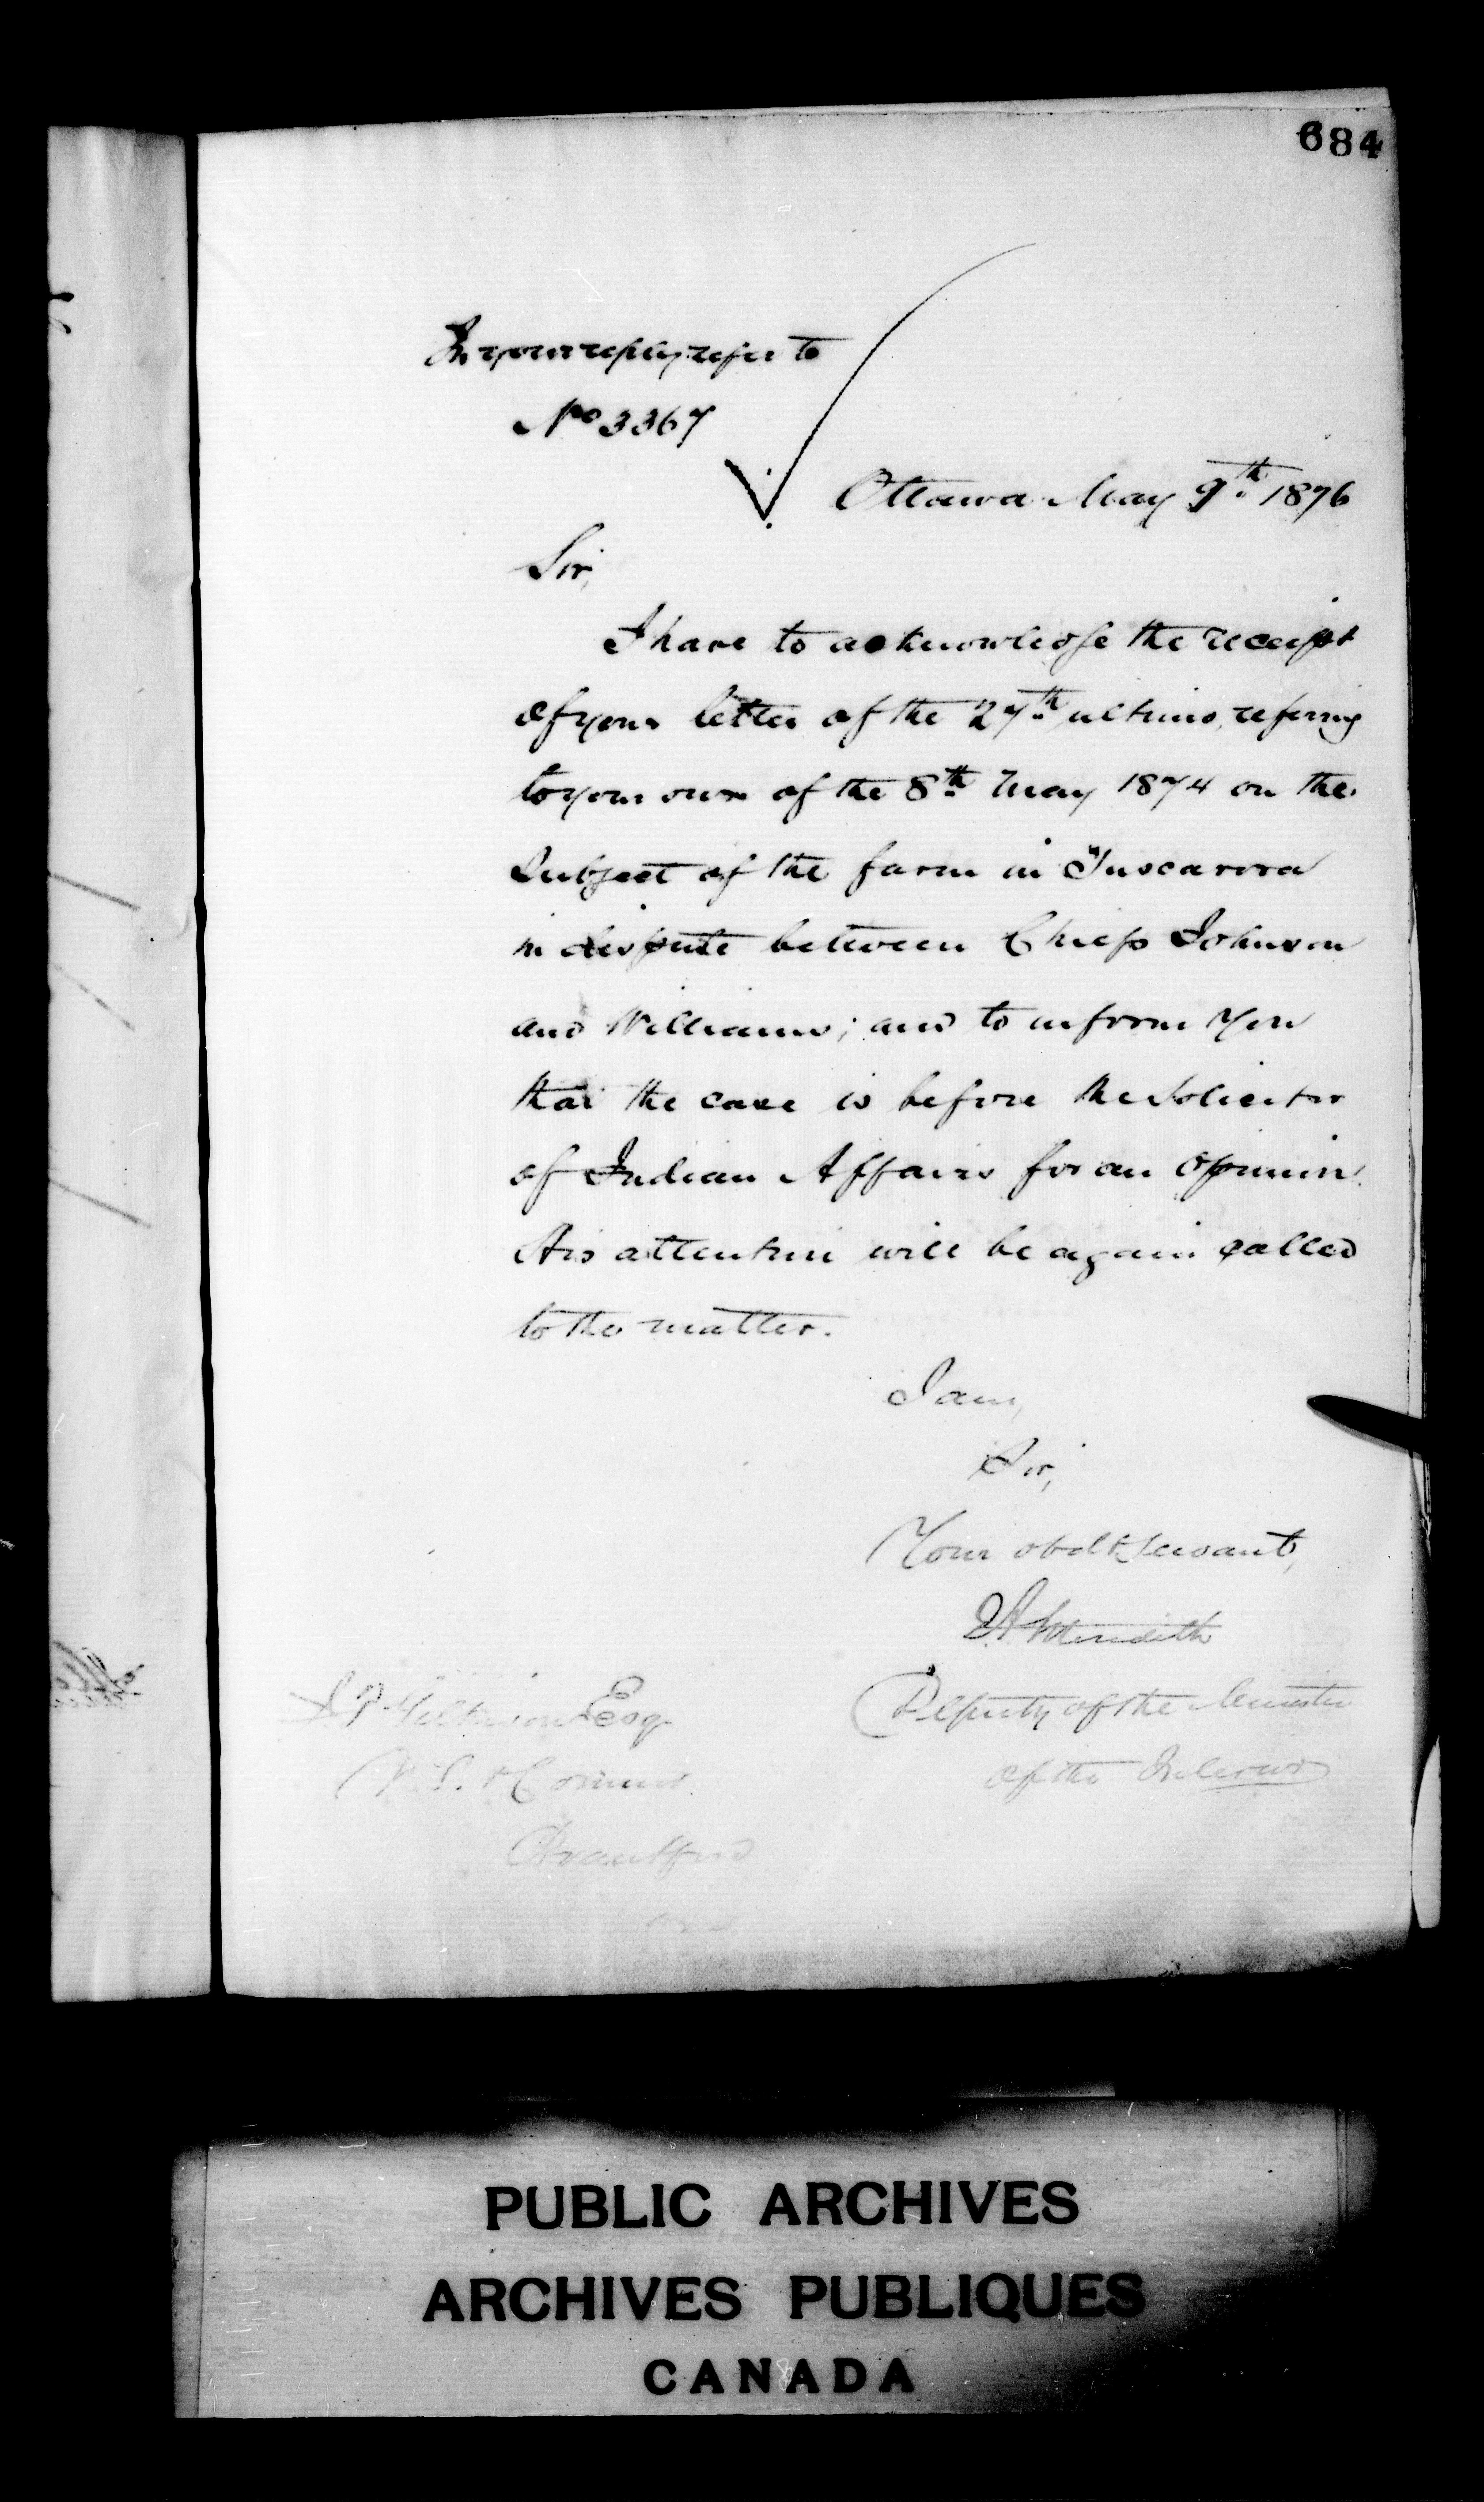 684
In your reply refer to
No 3367
Ottawa May 9th 1876
Sir,
I have to acknowledge the receipt
of your letter of the 27th ultimo, referring
to your own of the 8th May 1874 on the
Subject of the farm in Tuscarora
in dispute between Chiefs Johnson
and Williams; and to inform you
that the case is before the Solicitor
of Indian Affairs for an Opinion.
His attention will be again called
to the matter.
I am,
Sir,
Your obdt Servant,
EA Meredith
Deputy of the Minister
of the Interior
J T Gilkison Esq
V. S. & Commr
Brantford
PUBLIC ARCHIVES
ARCHIVES PUBLIQUES
CANADA